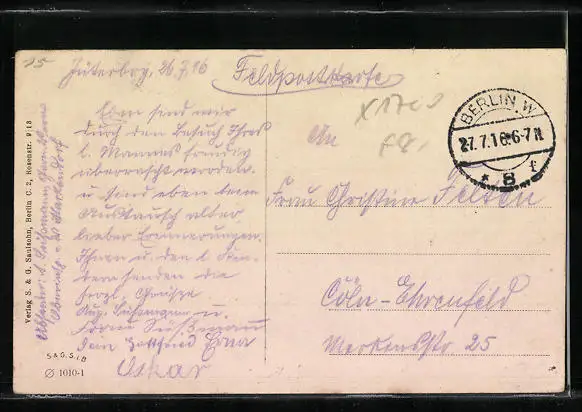 15
Jüterbog, 26.7.16
Feldpostkarte
Eben sind wir
durch den Besuch Ihres
l. Mannes freudig
überrascht worden
u. sind eben beim
Austausch alter
lieber Erinnerungen.
Ihnen u. den l. Kin-
dern senden die
herzl. Grüße
Aug. u.
Frau
Dein Gottfried
Oskar
An
Frau Christine Felten
Cöln-Ehrenfeld
Merkensstr 25
BERLIN W
27.7.16.6-7N
* 8 f
Verlag S. & G. Saulsohn, Berlin C. 2, Rosenstr. 9/13
S.&G.S.i.B
1010-1